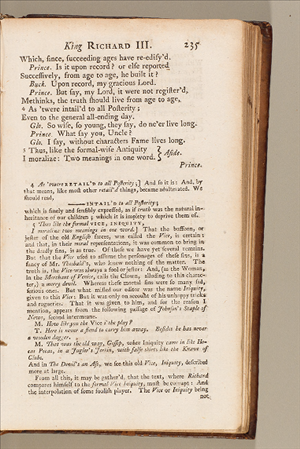 King RICHARD III. 235
Which, since, succeeding ages have re-edify'd.
Prince. Is it upon record? or else reported
Successively, from age to age, he built it?
Buck. Upon record, my gracious Lord.
Prince. But say, my Lord, it were not register'd,
Methinks, the truth should live from age to age,
4 As 'twere intail'd to all Posterity;
Even to the general all-ending day.
Glo. So wise, so young, they say, do ne'er live long.
Prince. What say you, Uncle?
Glo. I say, without characters Fame lives long.
5 Thus, like the formal-wise Antiquity } Aside.
I moralize: Two meanings in one word. }
Prince.
4 As 'twere RETAIL'D to all Posterity;] And so it is: And, by
that means, like most other retail'd things, became adulterated. We
should read,
INTAIL'D to all Posterity;
which is finely and sensibly expressed, as if truth was the natural in-
heritance of our children; which it is impiety to deprive them of.
5 Thus like the formal VICE, INIQUITY,
I moralize two meanings in one word.] That the buffoon, or
jester of the old English farces, was called the Vice, is certain:
and that, in their moral representations, it was common to bring in
the deadly sins, is as true. Of these we have yet several remains.
But that the Vice used to assume the personages of those sins, is a
fancy of Mr. Theobald's, who knew nothing of the matter. The
truth is, the Vice was always a fool or jester: And, (as the Woman,
in the Merchant of Venice, calls the Clown, alluding to this charac-
ter,) a merry devil. Whereas these mortal sins were so many sad,
serious ones. But what misled our editor was the name Iniquity,
given to this Vice: But it was only on account of his unhappy tricks
and rogueries. That it was given to him, and for the reason I
mention, appears from the following passage of Johnson's Staple of
News, second intermeane.
M. How like you the Vice i'the play?
T. Here is never a fiend to carry him away. Besides he has never a
wooden dagger.
M. That was the old way, Gossip, when Iniquity came in like Ho-
cas Pocas, in a Jugler's Jerkin, with false skirts like the Knave of
Clubs.
And in The Devil's an Ass, we see this old Vice, Iniquity, described
more at large.
From all this, it may be gather'd, that the text, where Richard
compares himself to the formal Vice Iniquity, must be corrupt: And
the interpolation of some foolish player. The Vice or Iniquity being
not